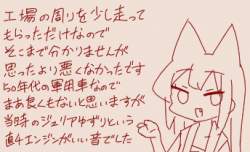 工場の周りを少し走って
もらっただけなので
そこまで分かりませんが
思ったより悪くなかったです
50年代の軍用車なので
まあ良くもないと思いますが
当時のジュリアゆずりという
直4エンジンがいい音でした